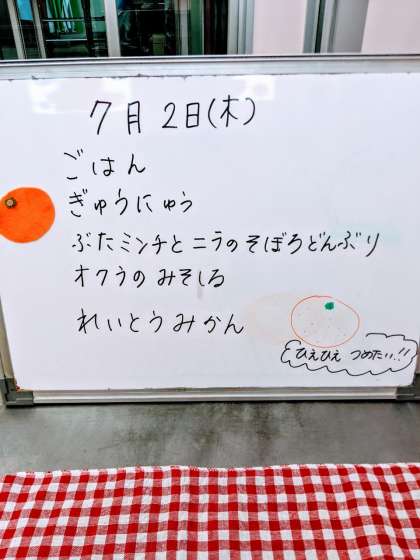 7月2日(木)
ごはん
ぎゅうにゅう
ぶたミンチとニラのそぼろどんぶり
オクラのみそしる
れいとうみかん
ひえひえ つめたい!!